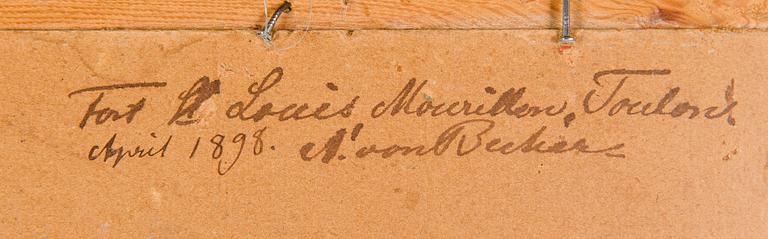 Fort St Louis Mourillon, Toulon,
April 1898. A. von Becker